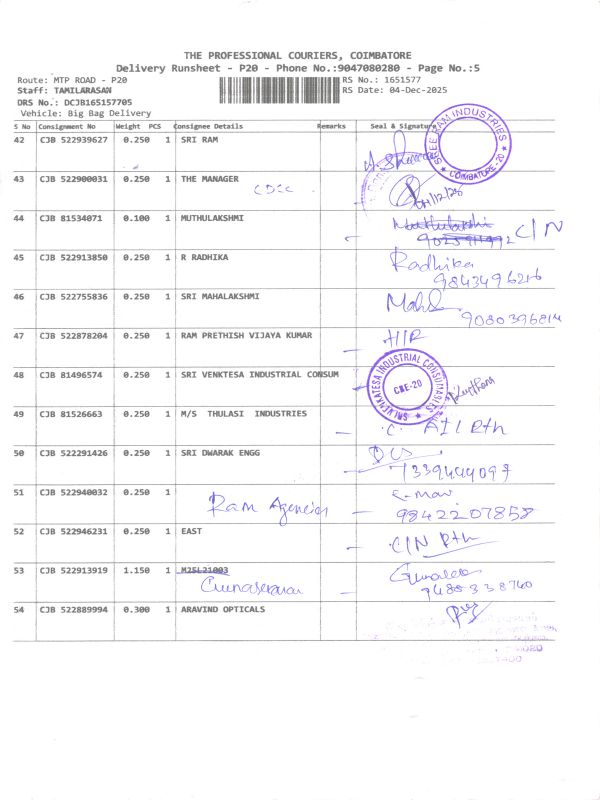 THE PROFESSIONAL COURIERS, COIMBATORE
Delivery Runsheet - P20 - Phone No.:9047080280 - Page No.:5
Route: MTP ROAD - P20 RS No.: 1651577
Staff: TAMILARASAN RS Date: 04-Dec-2025
DRS No.: DCJB165157705
Vehicle: Big Bag Delivery
S No Consignment No Weight PCS Consignee Details Remarks Seal & Signature
SREE RAM INDUSTRIES ★ COIMBATORE-20 ★
42 CJB 522939627 0.250 1 SRI RAM
43 CJB 522900031 0.250 1 THE MANAGER
CDCC
44 CJB 81534071 0.100 1 MUTHULAKSHMI Muthulakshi C/N
45 CJB 522913850 0.250 1 R RADHIKA Radhika
9843496216
46 CJB 522755836 0.250 1 SRI MAHALAKSHMI
9080396814
47 CJB 522878204 0.250 1 RAM PRETHISH VIJAYA KUMAR
48 CJB 81496574 0.250 1 SRI VENKTESA INDUSTRIAL CONSUM
CBE-20
49 CJB 81526663 0.250 1 M/S THULASI INDUSTRIES
50 CJB 522291426 0.250 1 SRI DWARAK ENGG
7339444097
51 CJB 522940032 0.250 1
Ram Agencies 9842207858
52 CJB 522946231 0.250 1 EAST C/N Rth
53 CJB 522913919 1.150 1 M25L21003
54 CJB 522889994 0.300 1 ARAVIND OPTICALS